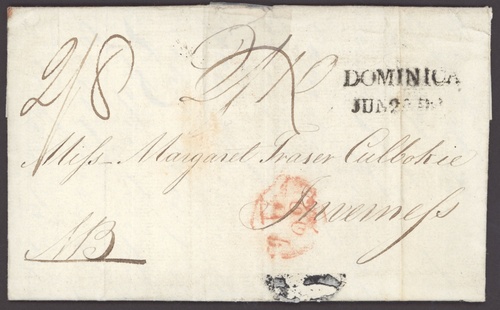 2/8
DOMINICA
JUN
Miss Margaret Fraser Culbokie
Inverness
NB